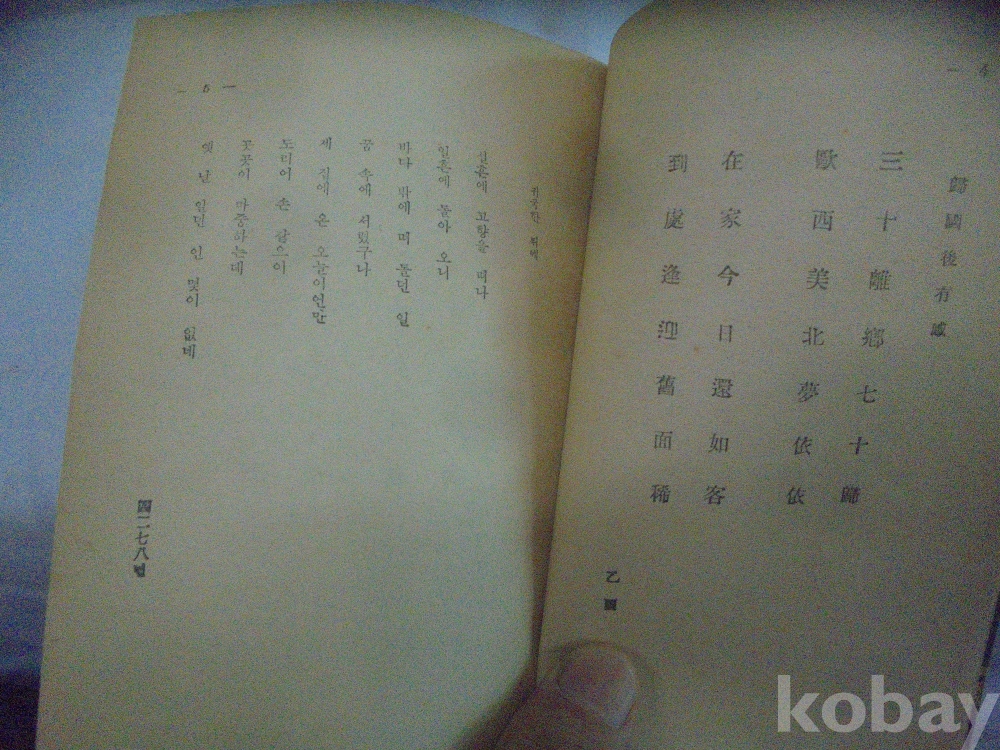 — 4
歸國後有感
三十離鄕七十歸
歐西美北夢依依
在家今日還如客
到處逢迎舊面稀
乙
— 5 —
귀국한 뒤에
설흔에 고향을 떠나
일흔에 돌아 오니
바다 밖에 떠 돌던 일
꿈 속에 서렸구나
제 집에 온 오늘이언만
도리어 손 같으이
곳곳이 마중하는데
옛 인 몇이 없네
四二七八년
kobay